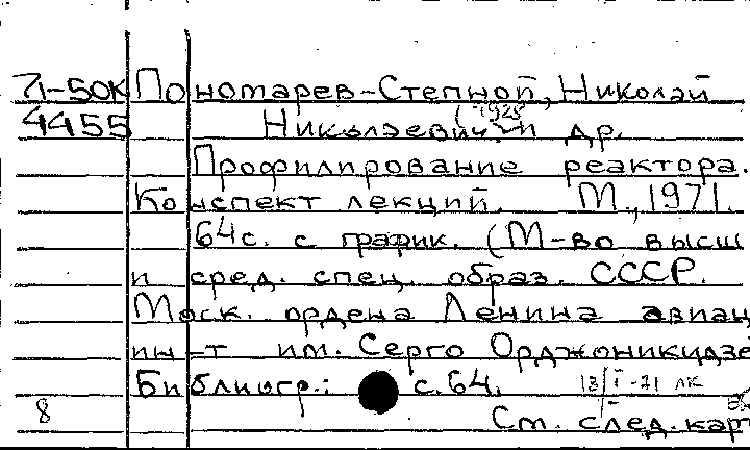 71-50К Пономарев-Степной, Николай
4455 Николаевич (1928 и др.
Профилирование реактора.
Конспект лекций. М., 1971.
64с. с график. (М-во высш
и сред. спец. образ. СССР.
Моск. ордена Ленина авиац
ин-т им. Серго Орджоникидзе
Библиогр.: с.64.
8 См. след. карт